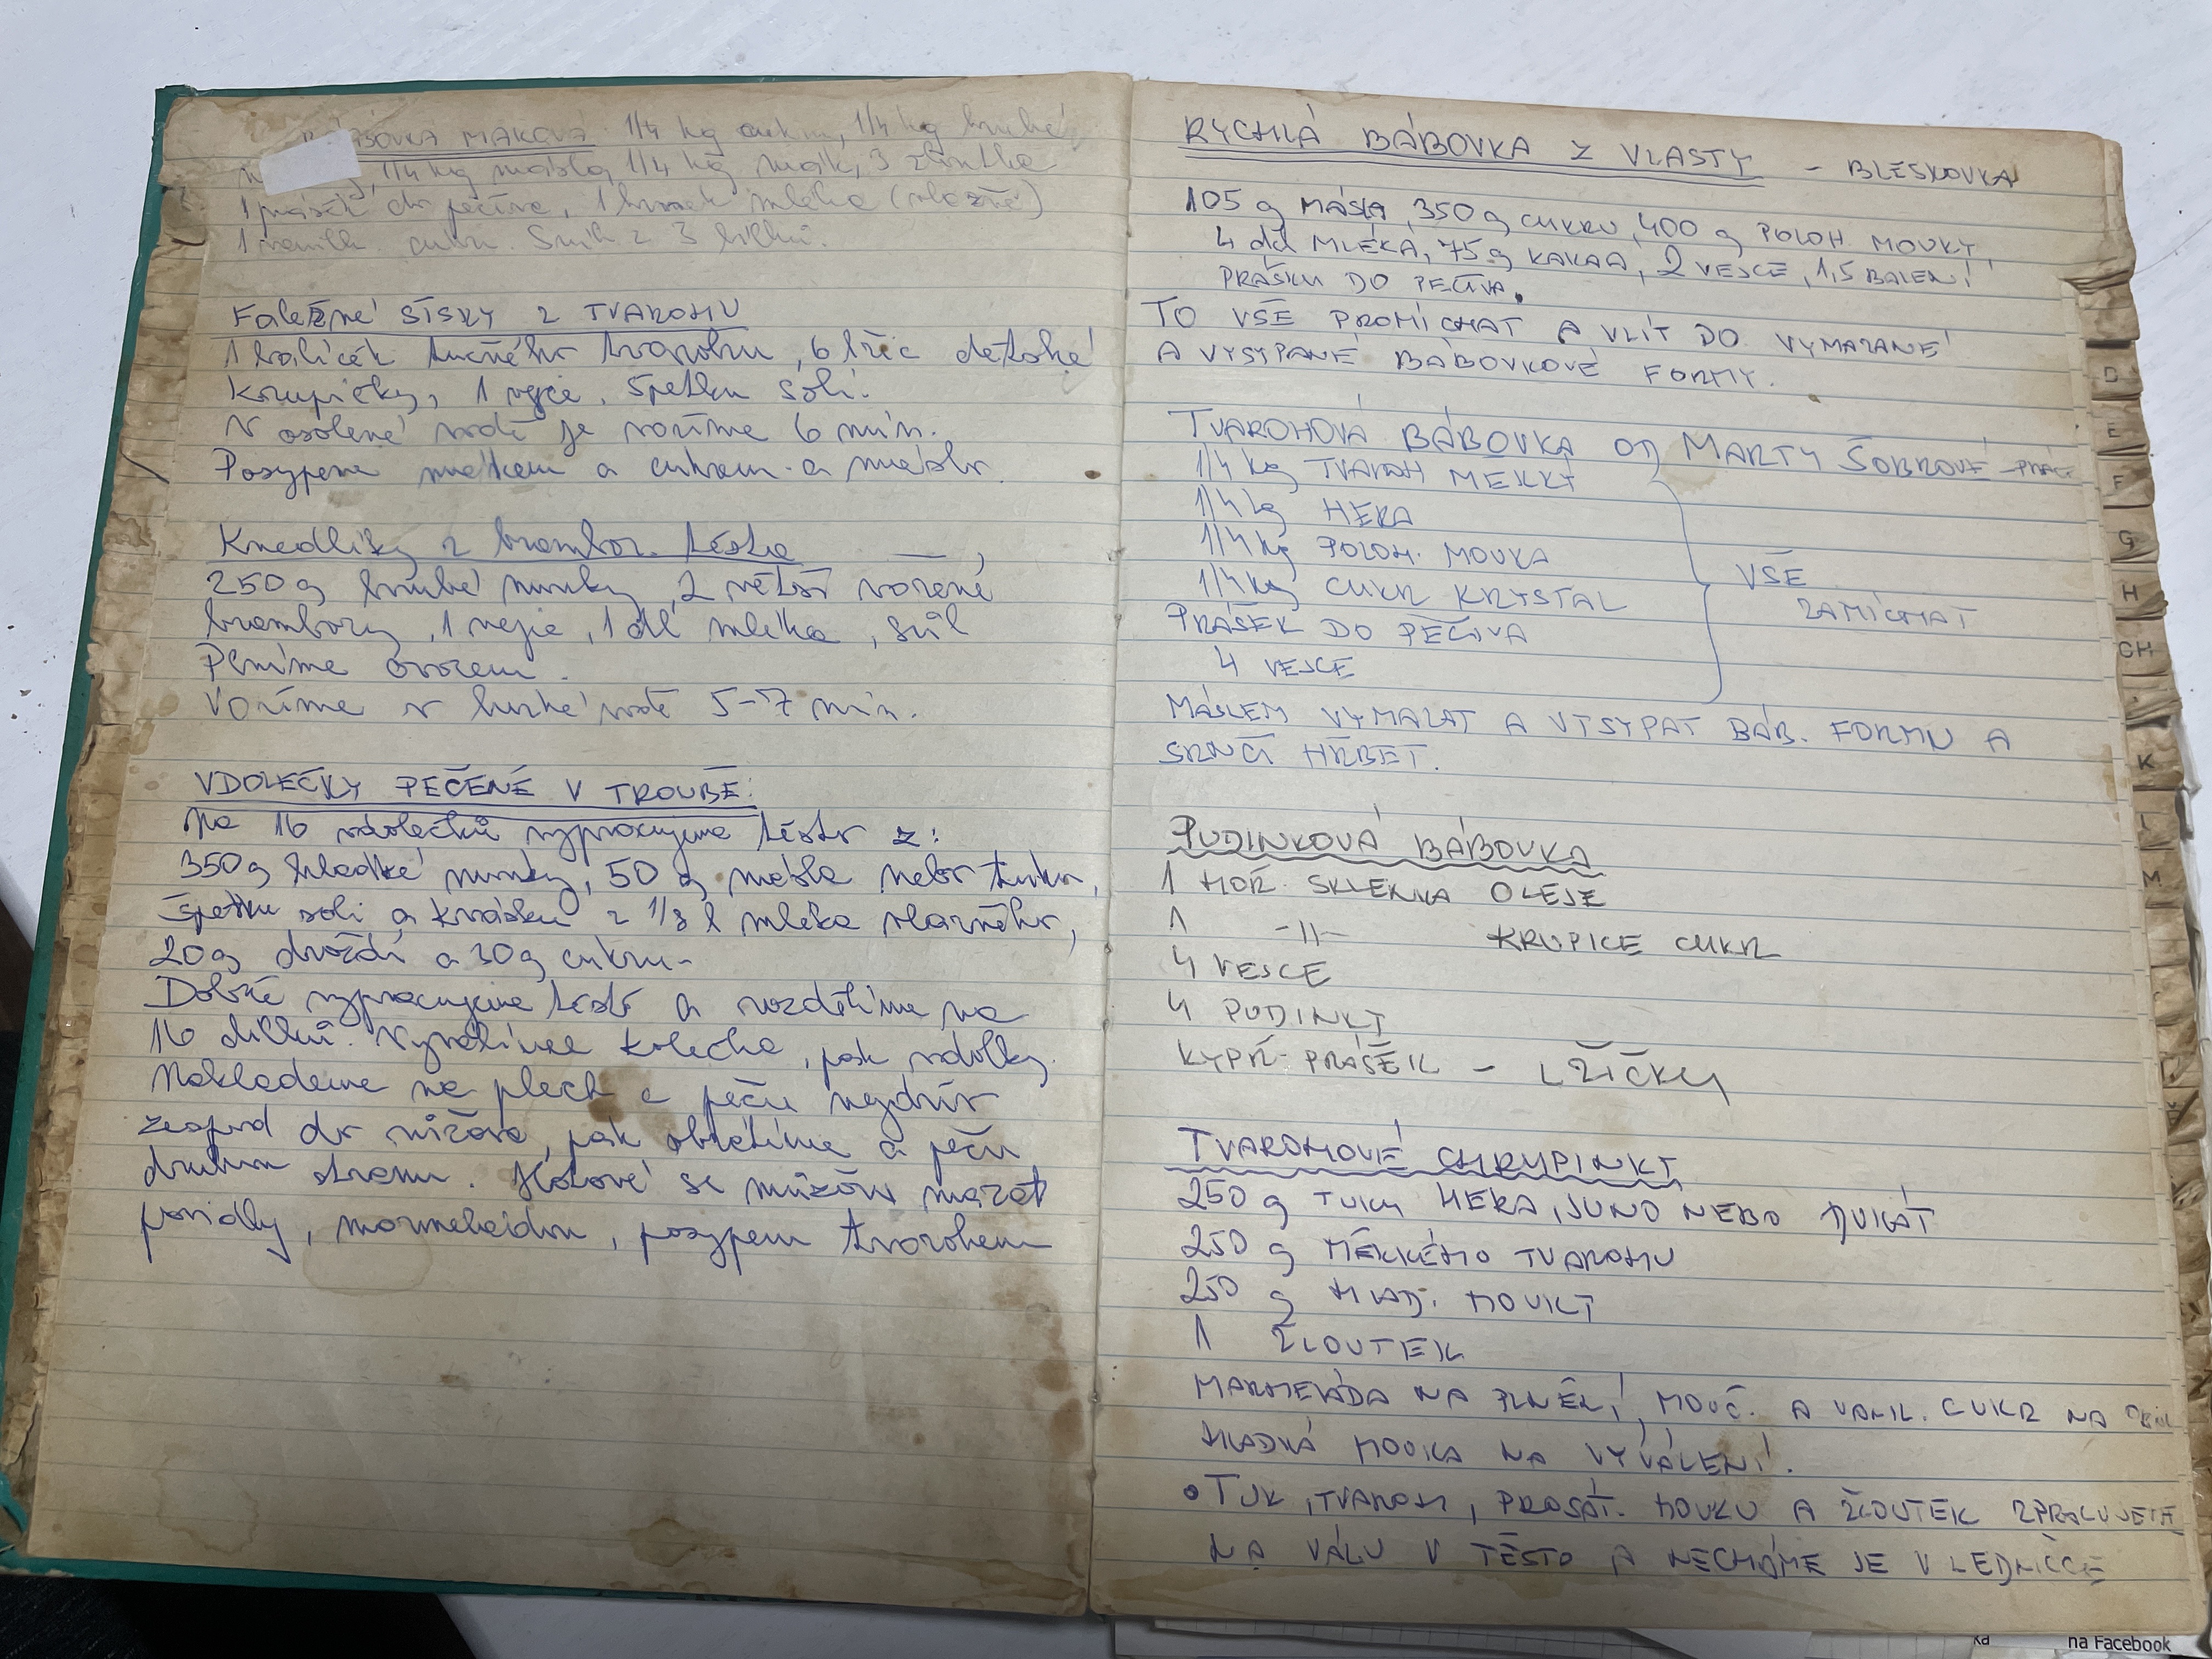 BÁBOVKA MAKOVÁ: 1/4 kg cukru, 1/4 kg hrubé
1/4 kg másla, 1/4 kg mouky, 3 žloutka
1 prášek do pečiva, 1 hrnek mléka (vlažné)
1 vanilk cukr. Sníh z 3 bílků.
Falešné šišky z TVAROHU
1 balíček tučného tvarohu, 6 lžic dětské
krupičky, 1 vejce, špetku soli.
V osolené vodě je vaříme 6 min.
Posypeme mákem a cukrem a máslo.
Knedlíky z brambor. těsta
250g hrubé mouky, 2 větší vařené
brambory, 1 vejce, 1 dl mléka, sůl
Plníme ovocem.
Vaříme v horké vodě 5-7 min.
VDOLEČKY PEČENÉ V TROUBĚ:
Na 16 vdolečků vypracujeme těsto z:
350g hladké mouky, 50g másla nebo tuku,
špetku soli a kvásku z 1/8 l mléka vlažného,
20g droždí a 30g cukru.
Dobře vypracujeme těsto a rozdělíme na
16 dílů. Vyválíme kolečka, pak vdolky
naklademe na plech a peču nejdřív
žespod do růžova, pak obrátíme a peču
druhou stranu. Hotové se můžou mazat
povidly, marmeládou, posypem tvarohem
RYCHLÁ BÁBOVKA Z VLASTY - BLESKOVKA
105 g MÁSLA, 350 g CUKRU, 400 g POLOH MOUKY
4 dcl MLÉKA, 75 g KAKAA, 2 VEJCE, 1,5 BALENÍ
PRÁŠKU DO PEČIVA.
TO VŠE PROMÍCHAT A VLÍT DO VYMAZANÉ
A VYSYPANÉ BÁBOVKOVÉ FORMY.
TVAROHOVÁ BÁBOVKA OD MARTY ŠOBROVÉ -PRÁCE
1/4 kg TVAROH MĚKKÝ
1/4 kg HERA
1/4 kg POLOH. MOUKA
1/4 kg CUKR KRYSTAL
PRÁŠEK DO PEČIVA
4 VEJCE
VŠE
ZAMÍCHAT
MÁSLEM VYMAZAT A VYSYPAT BÁB. FORMU A
SRNČÍ HŘBET.
PUDINKOVÁ BÁBOVKA
1 HOŘ. SKLENKA OLEJE
1 -||- KRUPICE CUKR
4 VEJCE
4 PUDINKY
KYPŘ. PRÁŠEK - LŽIČKU
TVAROHOVÉ CHRUPINKY
250 g TUKU HERA, JUNO NEBO DUKÁT
250 g MĚKKÉHO TVAROHU
250 g HLAD. MOUKY
1 ŽLOUTEK
MARMELÁDA NA PLNĚNÍ, MOUČ. A VANIL. CUKR NA
HLADKÁ MOUKA NA VYVÁLENÍ.
• TUK, TVAROH, PROSÁT. MOUKU A ŽLOUTEK ZPRACUJEME
NA VÁLU V TĚSTO A NECHÁME JE V LEDNIČCE
D
E
F
G
H
CH
K
L
M
na Facebook